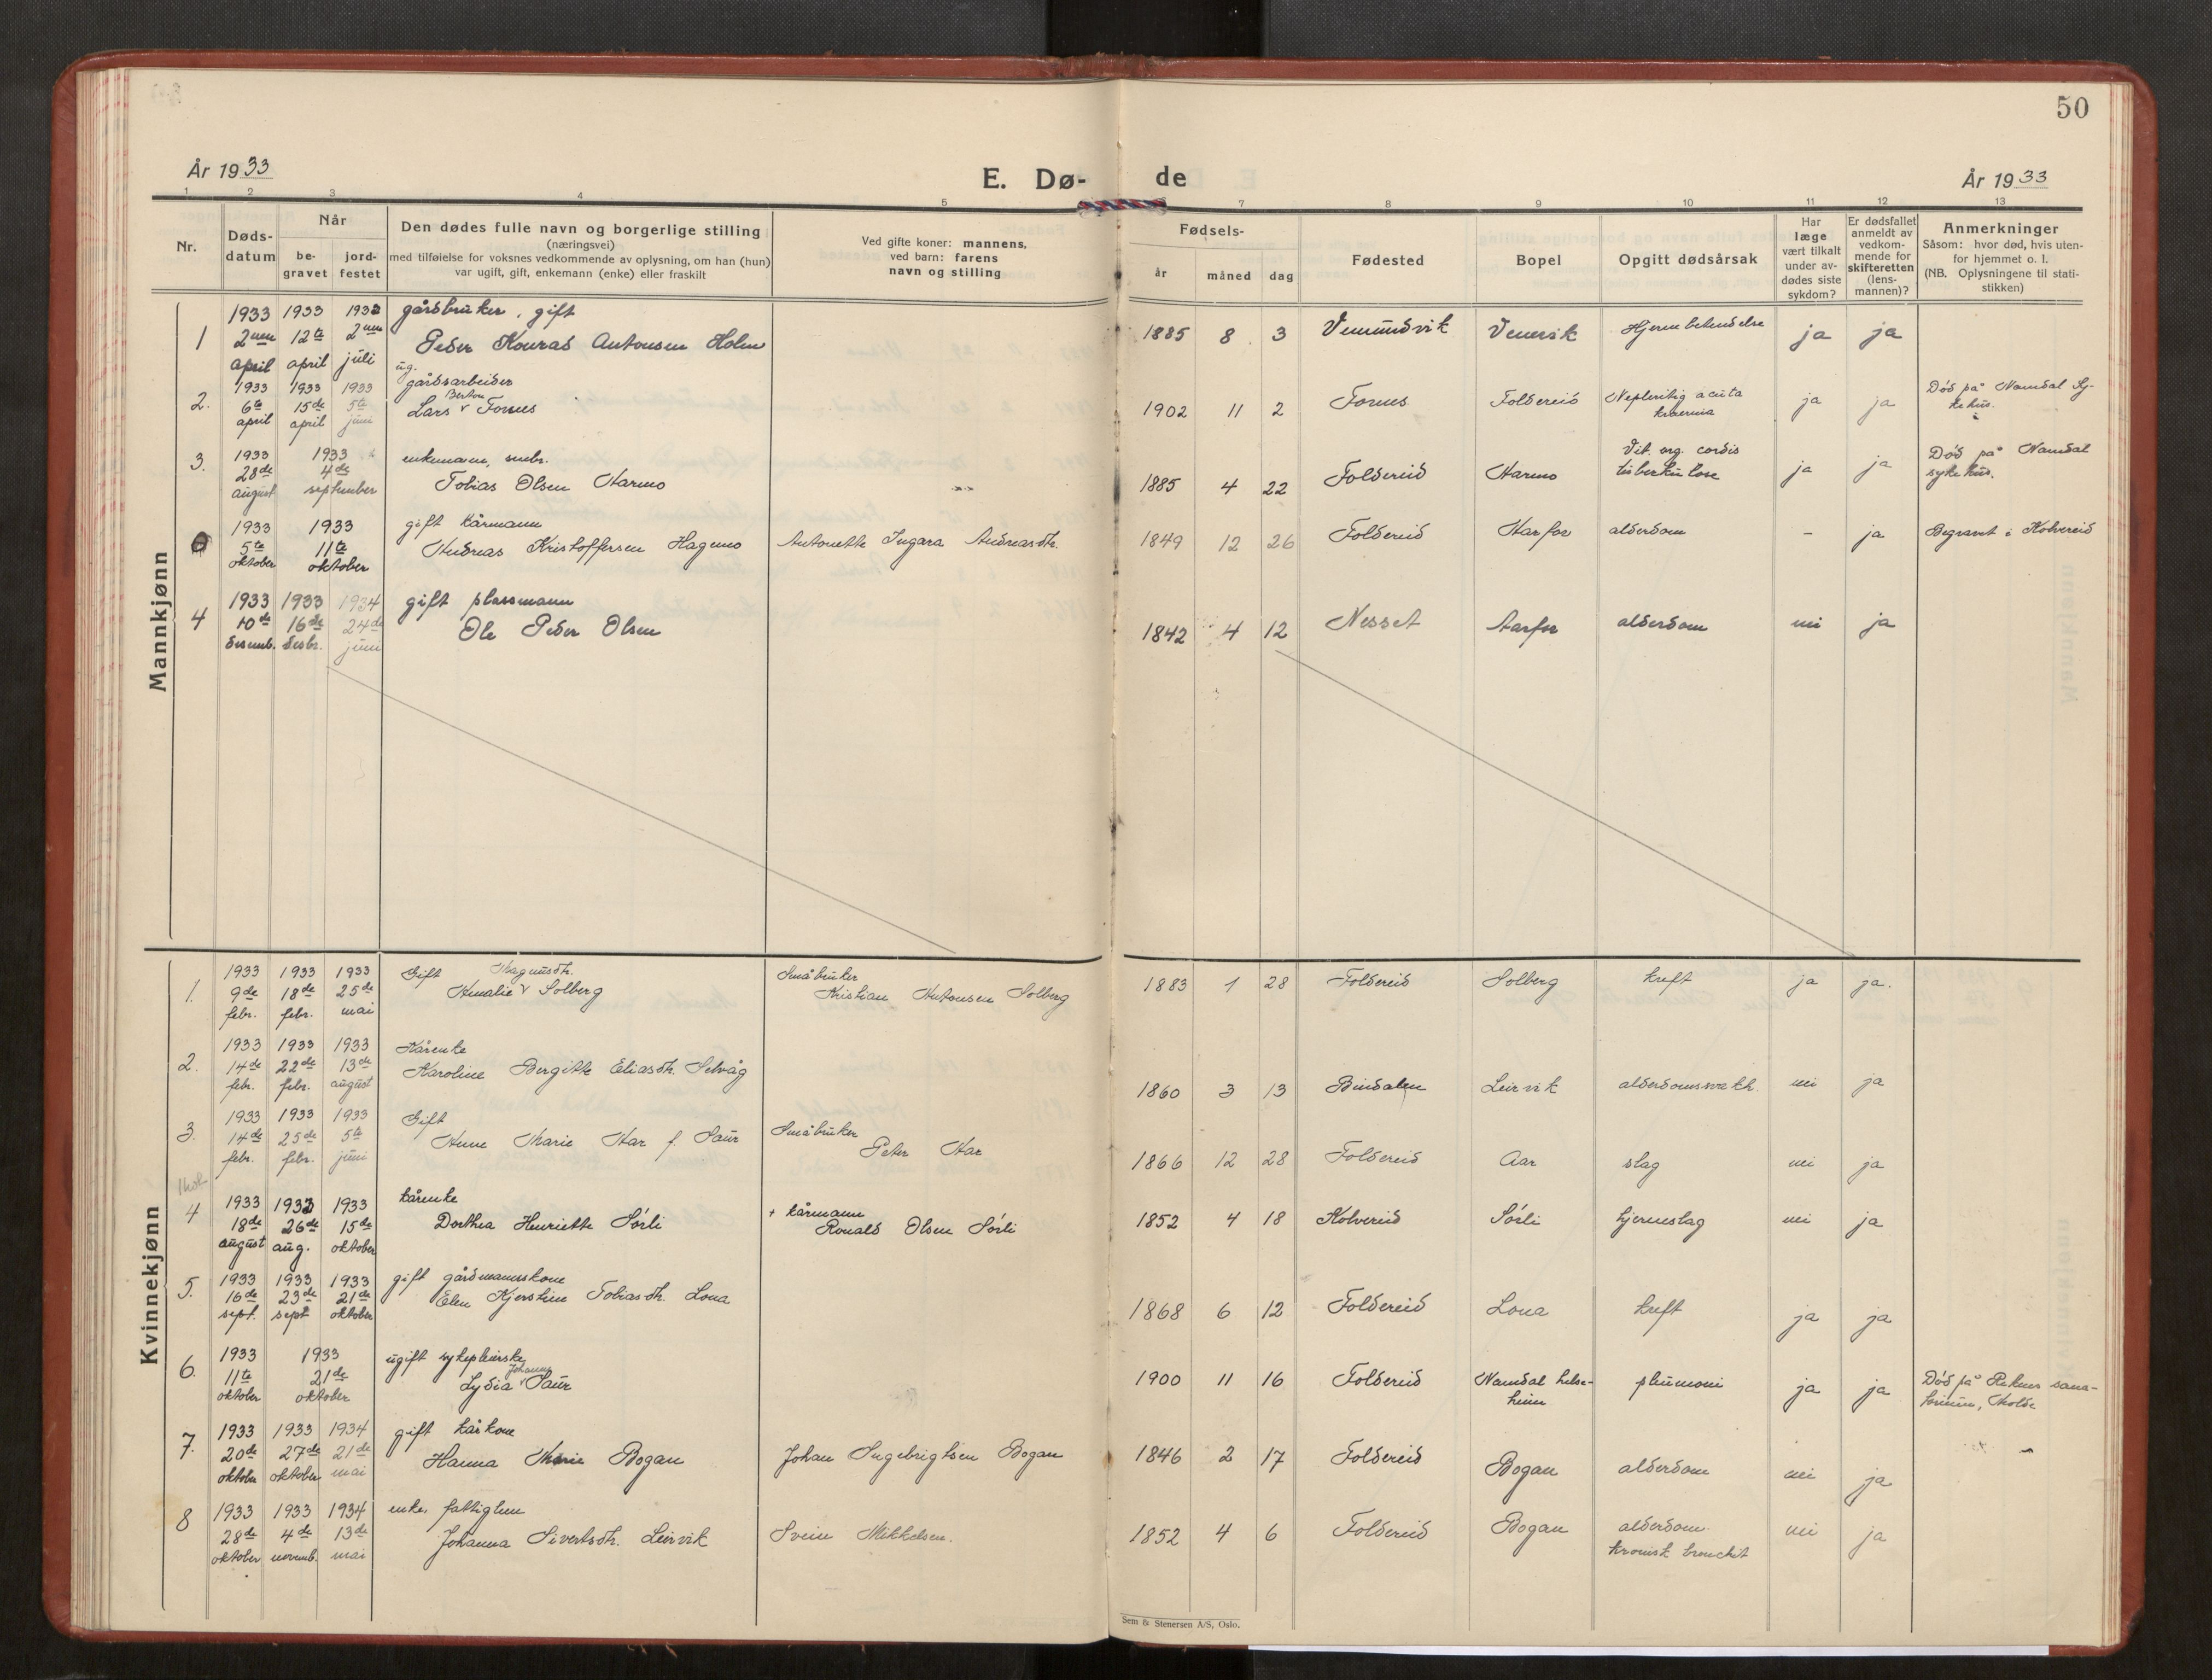 50
År 1933
E. Dø-
de
År 1933
1 2 3 4 5 7 8 9 10 11 12 13
Nr.
Døds-
datum
Når
be-
gravet
jord-
festet
Den dødes fulle navn og borgerlige stilling
(næringsvei)
med tilføielse for voksnes vedkommende av oplysning, om han (hun)
var ugift, gift, enkemann (enke) eller fraskilt
Ved gifte koner: mannens,
ved barn: farens
navn og stilling
Fødsels-
år
måned
dag
Fødested
Bopel
Opgitt dødsårsak
Har
læge
vært tilkalt
under av-
dødes siste
sykdom?
Er dødsfallet
anmeldt av
vedkom-
mende for
skifteretten
(lens-
mannen)?
Anmerkninger
Såsom: hvor død, hvis uten-
for hjemmet o. l.
(NB. Oplysningene til stati-
stikken)
Mannkjønn
1933 1933 1933 gårdbruker, gift
1 2nen 12te 2nen Peder Konrad Antonsen Holm 1885 8 3 Vemundsvik ja ja
april april juli
ug.
1933 1933 1933 gårdsarbeider
Berton
2. 6te 15de 5te Lars v Fornes 1902 11 2 Fornes Foldereid acuta ja ja Död på Namdal Sy-
april april juni kehus.
1933 1933 enkemann, smbr.
3. 28de 4de Tobias Olsen Harmo 1885 4 22 Foldereid Harmo Vit. org. cordis ja ja Död på Namdal
august september tuberkulose sykehus.
1933 1933 gift kårmann
5te 11te Andreas Kristoffersen Hagmo Antonette Ingara Andreasdtr. 1849 12 26 Foldereid alderdom - ja Begravet i Kolvereid
oktober oktober
1933 1933 1934 gift plassmann
4 10de 16de 24de Ole Peder Olsen 1842 4 12 Nesset Aarfor alderdom nei ja
desemb. desbr. juni
Kvinnekjønn
1933 1933 1933 Gift Magnusdtr. Småbruker
1. 9de 18de 25de Amalie v Solberg Kristian Antonsen Solberg 1883 1 28 Foldereid Solberg kreft ja ja.
febr. febr. mai
1933 1933 1933 Kårenke
2. 14de 22de 13de Karoline Bergitte Eliasdtr. Selvåg 1860 3 13 Bindalen Leirvik nei ja
febr. febr. august
1933 1933 1933 Gift Småbruker
3. 14de 25de 5te Anne Marie Aar f. Saur Peter Aar 1866 12 28 Foldereid Aar slag nei ja
febr. febr. juni
1933 1933 1933 kårenke + kårmann
4 18de 26de 15de Dorthea Henriette Sörli Ronald Olsen Sörli 1852 4 18 Kolvereid Sörli hjerneslag nei ja
august aug. oktober
1933 1933 1933 gift gårdmannskone
5. 16de 23de 21de Elen Kjerstine Tobiasdtr. Lona 1868 6 12 Foldereid Lona kreft ja ja
sept. sept oktober
1933 1933 ugift sykepleierske
Johanne
6. 11te 21de Lydia v Saur 1900 11 16 Foldereid Namdal helse- pneumoni ja ja Död på Reknes sana-
oktober oktober heim torium, Molde
1933 1933 1934 gift kårkone
7. 20de 27de 21de Hanna Marie Bogan Johan Ingebrigtsen Bogan 1846 2 17 Foldereid Bogan alderdom nei ja
oktober oktober mai
1933 1933 1934 enke, fattiglem
8 28de 4de 13de Johanna Sivertsdtr. Leirvik Svein Mikkelsen. 1852 4 6 Foldereid Bogan alderdom. nei ja
oktober novemb. mai kronisk bronchit
Sem & Stenersen A/S, Oslo.